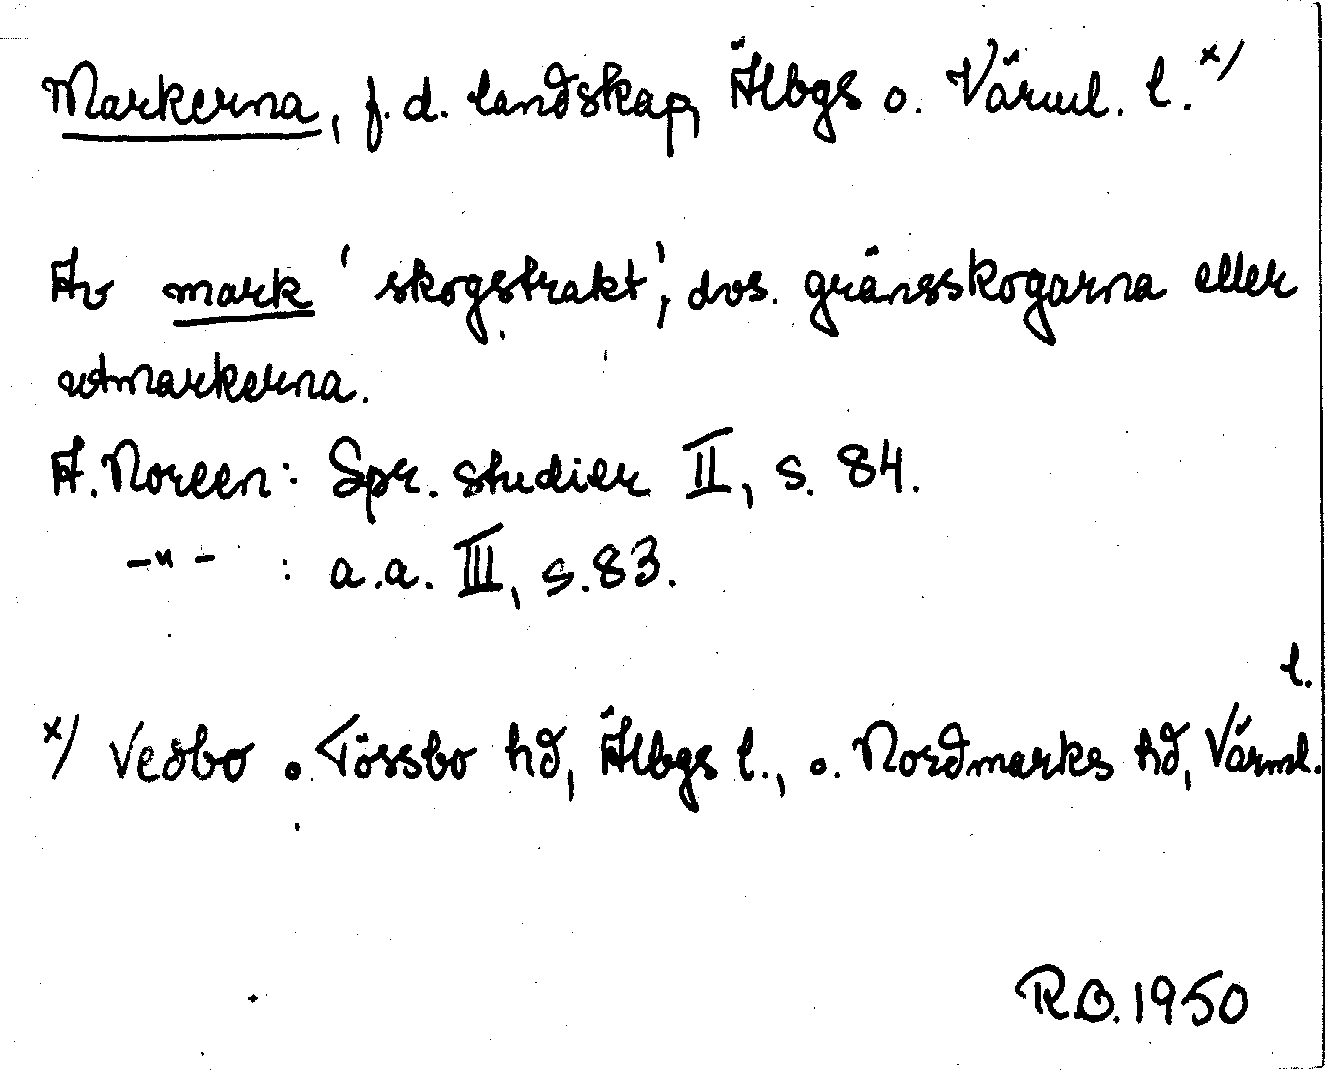 Markerna, f.d. landskap, Älbgs o. Värml. l. x/
Av mark 'skogstrakt', dvs. gränsskogarna eller
utmarkerna.
A. Noreen: Spr. studier II, s. 84.
-"- : a.a. III, s. 83.
x/ Vedbo o. Tössbo hd, Älbgs l., o. Nordmarks hd, Värml. l.
R.O. 1950